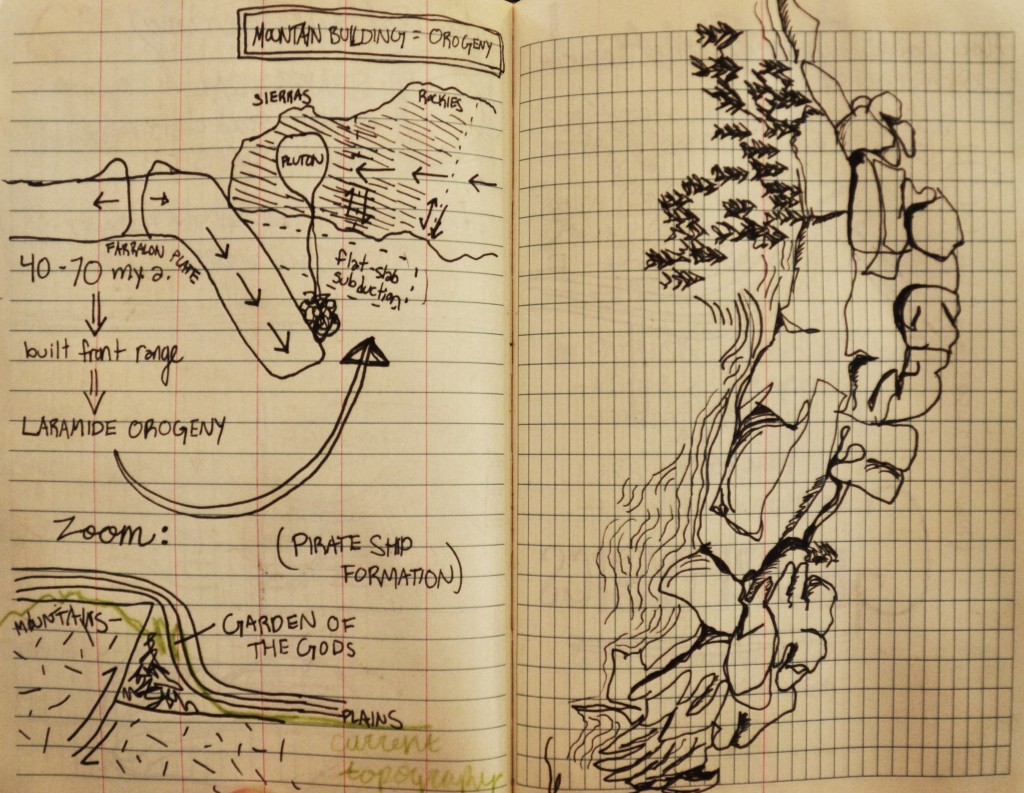 MOUNTAIN BUILDING = OROGENY
SIERRAS
ROCKIES
PLUTON
FARRALON PLATE
40-70 mya.
flat-slab
subduction
built front range
LARAMIDE OROGENY
Zoom:
(PIRATE SHIP
FORMATION)
MOUNTAINS-
GARDEN OF
THE GODS
PLAINS
current
topography